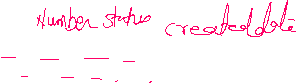 Number status created date